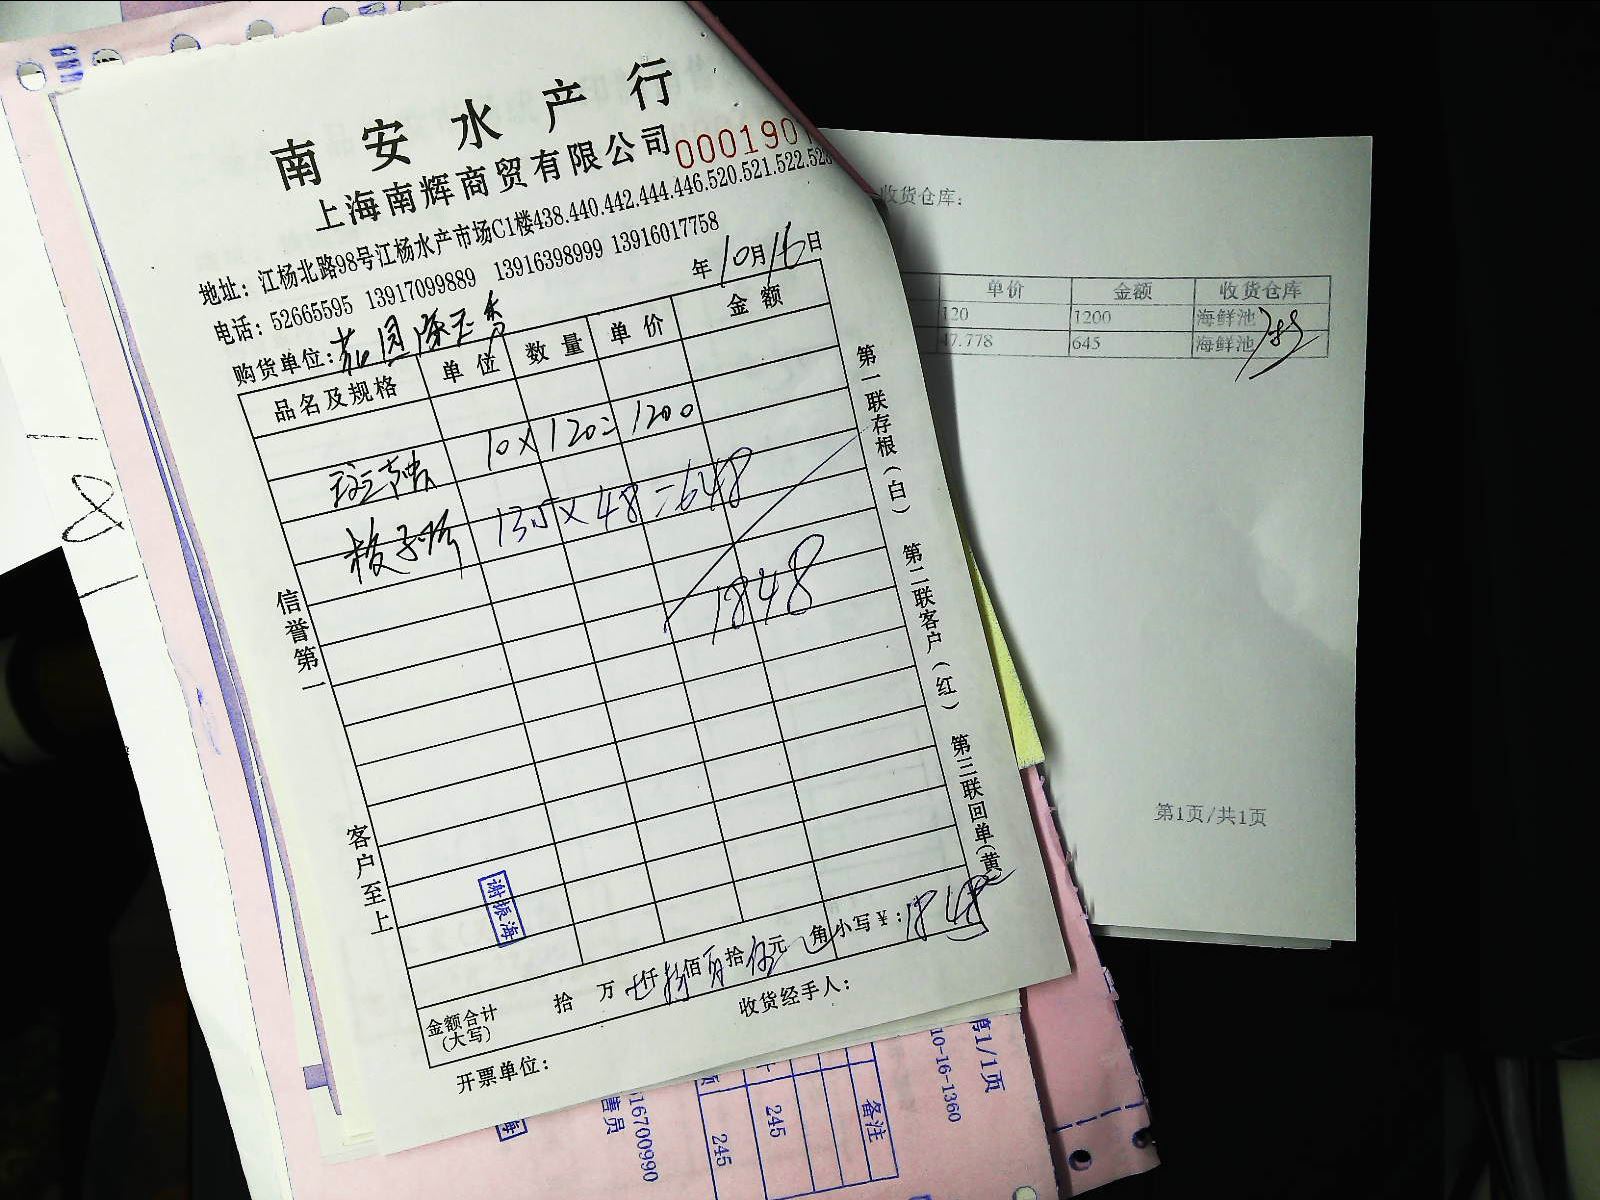 南安水产行
上海南辉商贸有限公司
000190
地址：江杨北路98号江杨水产市场C1楼438.440.442.444.446.520.521.522.523
电话：52665595 13917099889 13916398999 13916017758
年10月16日
购货单位：
品名及规格 单位 数量 单价 金额
10×120=1200
135×48=648
1848
信誉第一
客户至上
第一联存根（白） 第二联客户（红） 第三联回单（黄
谢振海
金额合计（大写） 拾 万 仟 佰 拾 元 角 小写¥：1848
收货经手人：
开票单位：
收货仓库：
单价 金额 收货仓库
120 1200 海鲜池
47.778 645 海鲜池
第1页/共1页
第1/1页
10-16-1360
备注
245
245
16700990
售员